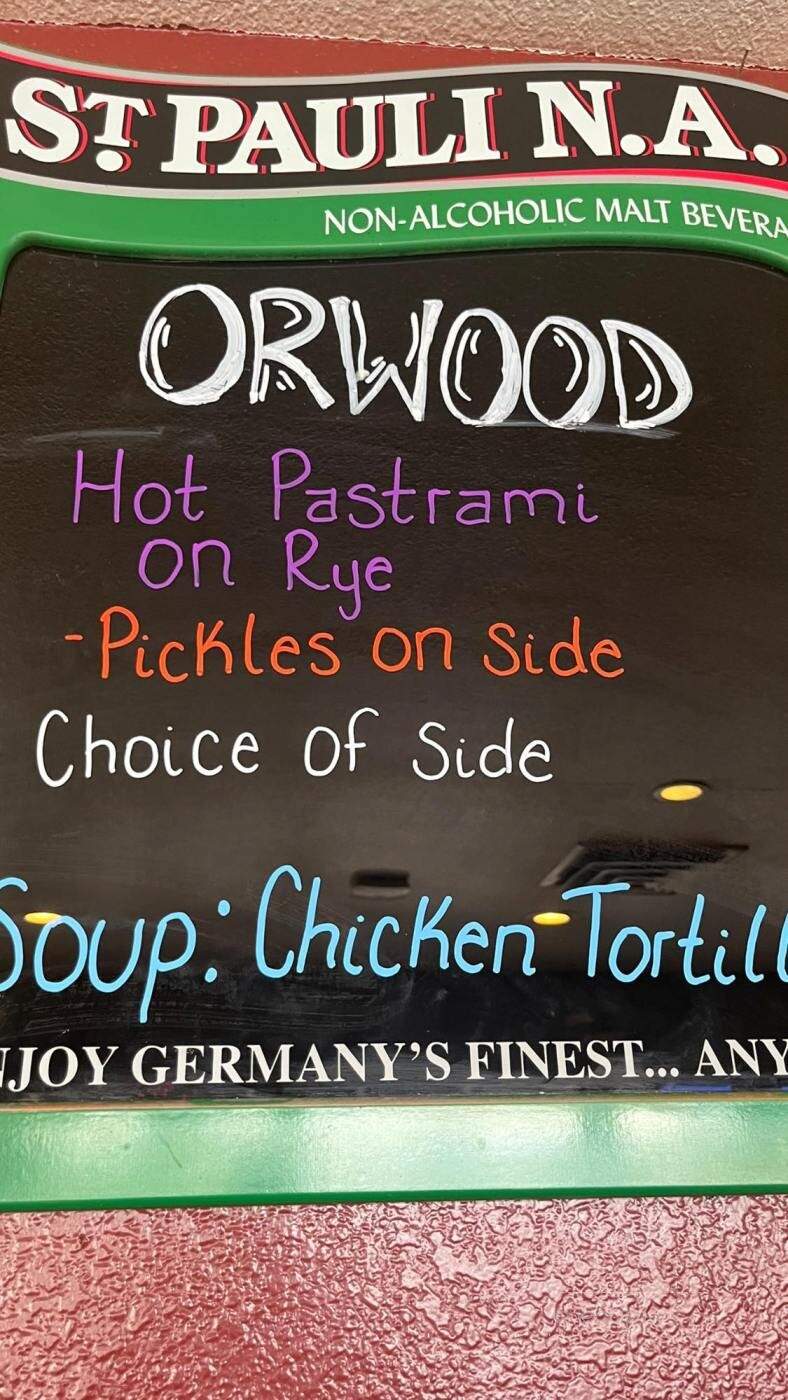 ST. PAULI N.A.
NON-ALCOHOLIC MALT BEVERA
ORWOOD
Hot Pastrami
on Rye
-Pickles on Side
Choice of Side
Soup: Chicken Tortill
NJOY GERMANY'S FINEST... ANY